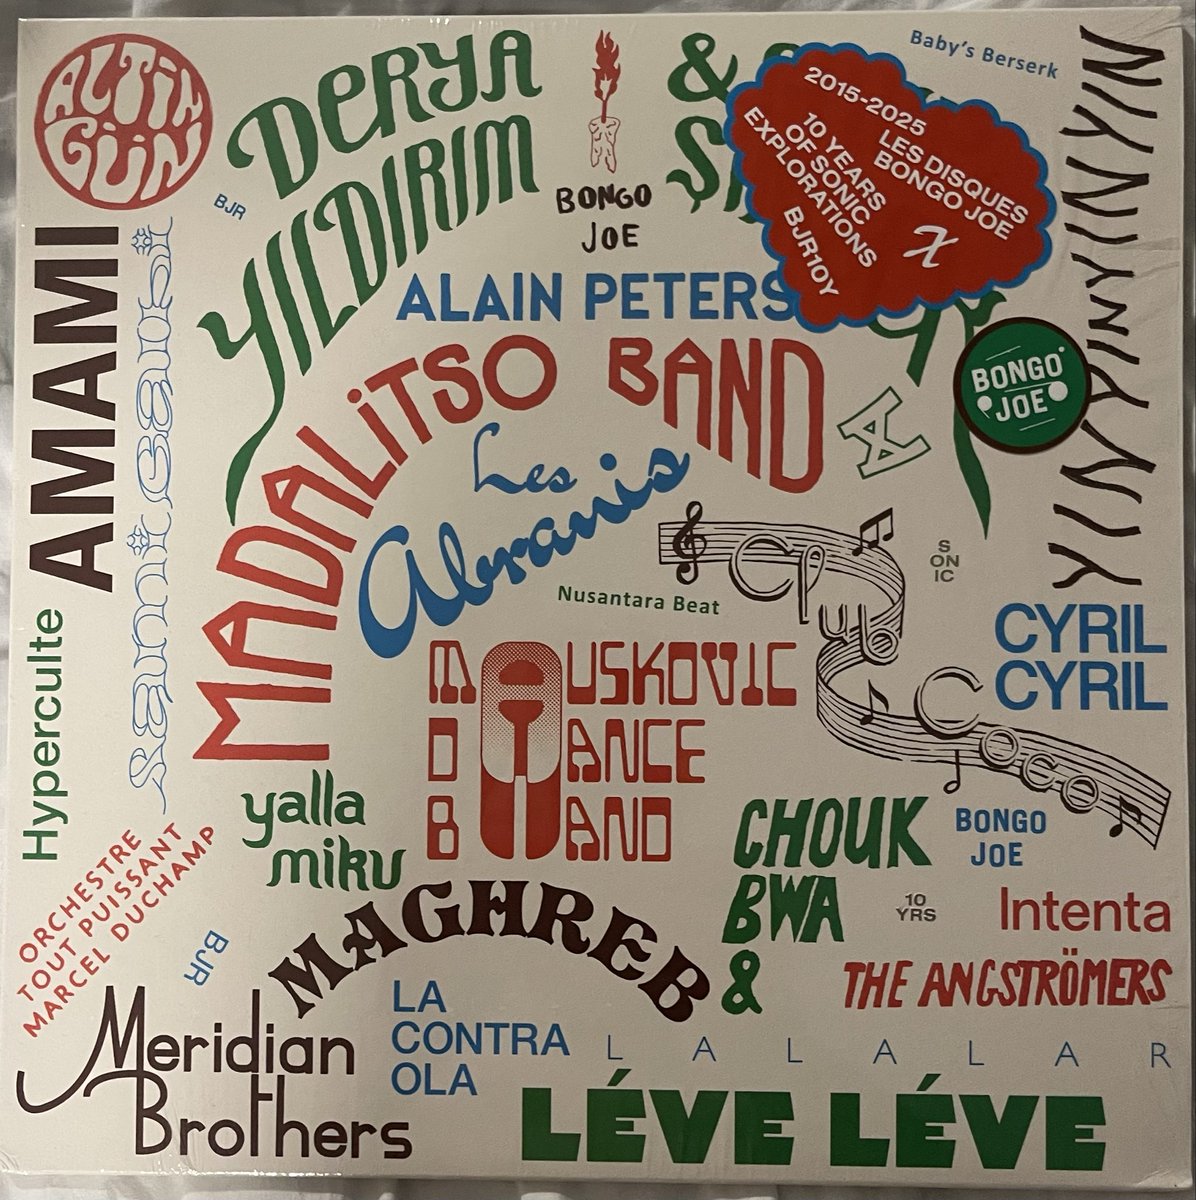 ALTIN
GÜN
DERYA
YILDIRIM
&
BJR
BONGO
JOE
Baby's Berserk
2015-2025
LES DISQUES
BONGO JOE
10 YEARS
OF SONIC
EXPLORATIONS
X
BJR10Y
YĪN YĪN
YĪN YĪN
ALAIN PETERS
BONGO
JOE
AMAMI
MADALITSO BAND
Les
Abranis
S
ON
IC
Nusantara Beat
Cplub
Coco
CYRIL
CYRIL
Hyperculte
MAUSKOVIC
DANCE
BAND
M
D
B
yalla
miku
CHOUK
BWA
&
THE ANGSTRÖMERS
BONGO
JOE
10
YRS
Intenta
ORCHESTRE
TOUT PUISSANT
MARCEL DUCHAMP
BJR
MAGHREB
Meridian
Brothers
LA
CONTRA
OLA
LALALAR
LÉVE LÉVE